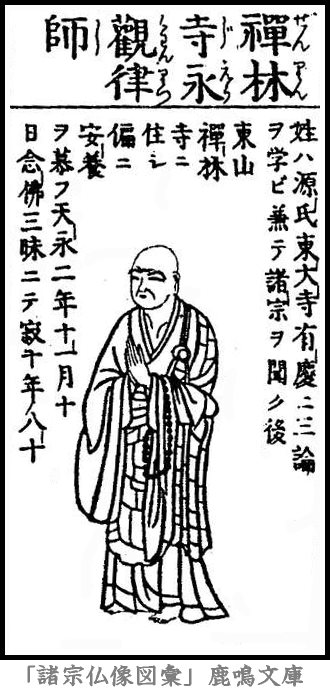 禪林
寺永
觀律
師
姓ハ源氏東大寺有慶ニ三論
ヲ学ビ兼テ諸宗ヲ聞ク後
東山
禪林
寺ニ
住シ
偏ニ
安養
ヲ慕フ天永二年十一月十
日念佛三昧ニテ寂ス年八十
「諸宗仏像図彙」鹿鳴文庫